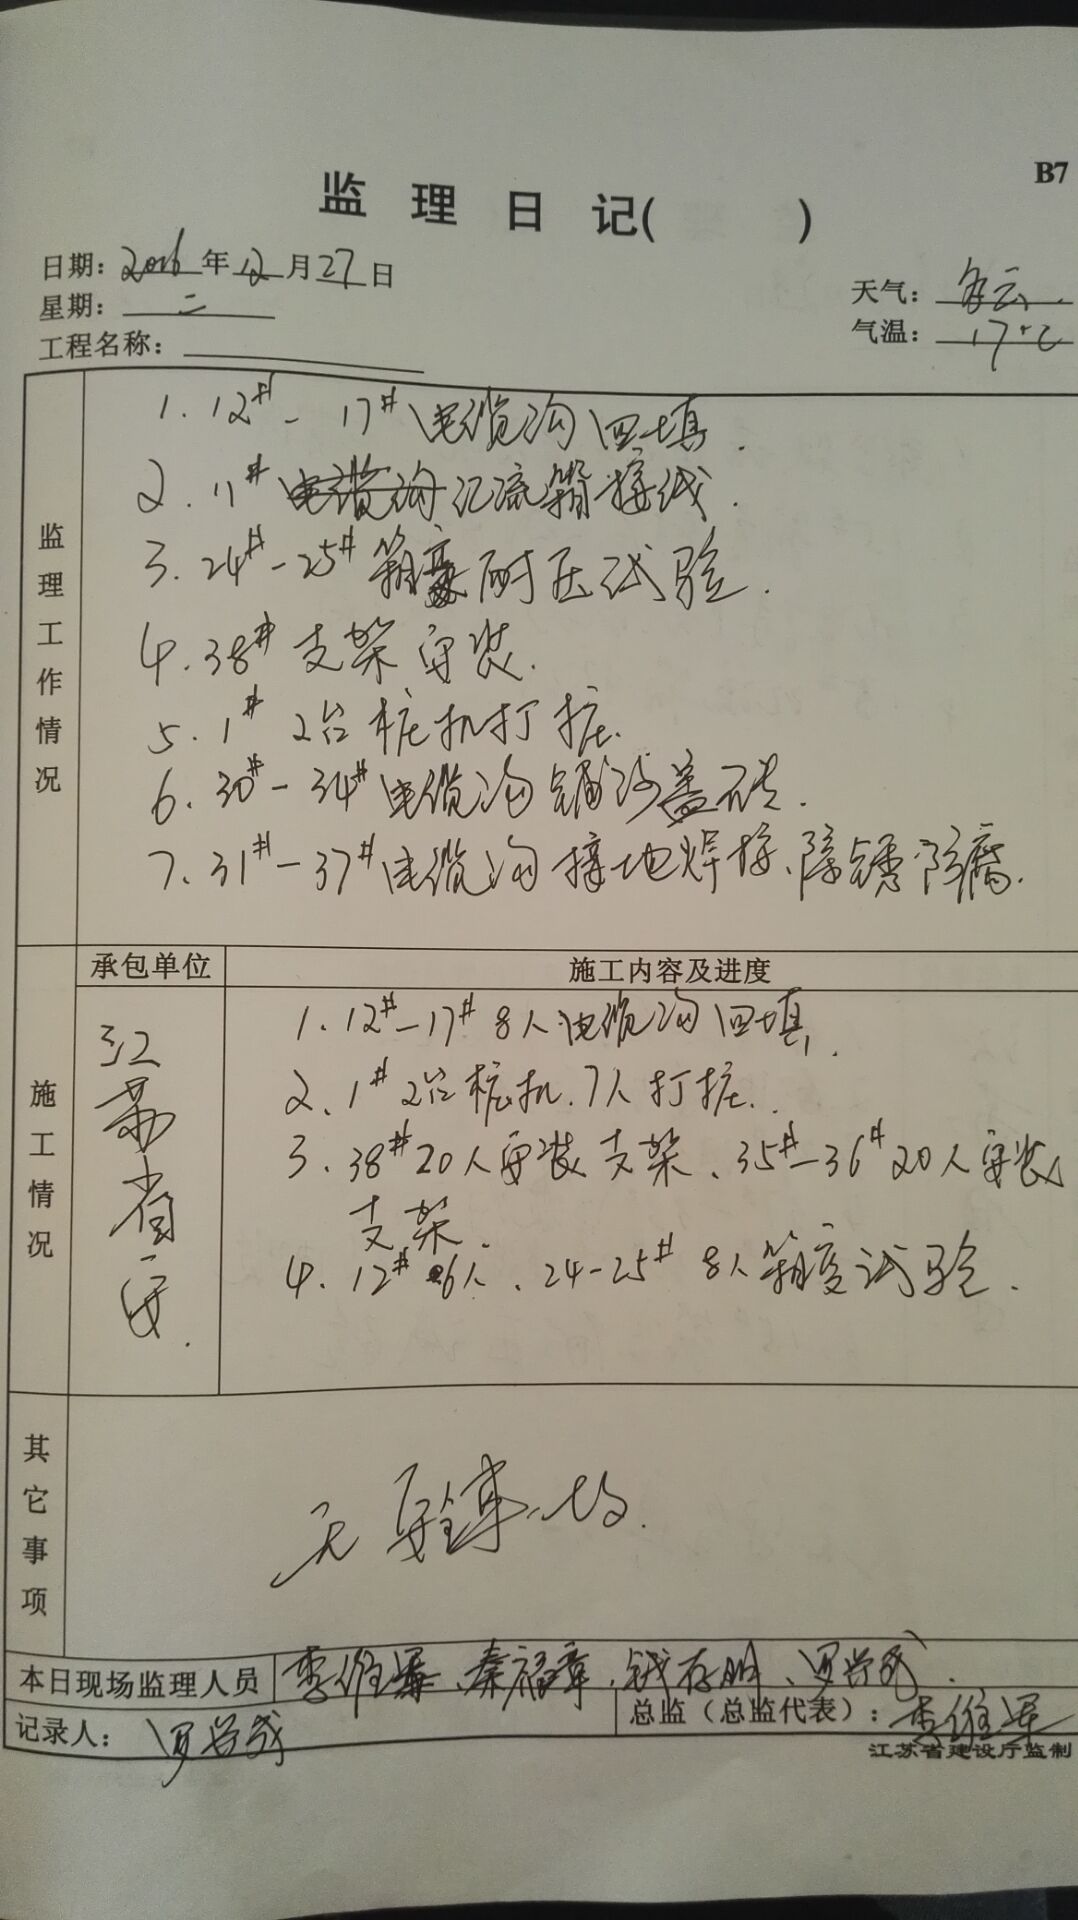 B7
监理日记( )
日期：2016年12月27日
星期：二
天气：多云.
工程名称：
气温：17℃
监理工作情况
1.12#-17#电缆沟回填.
2.11#汇流箱接线.
3.24#-25#箱变耐压试验.
4.38#支架安装.
5.1# 2台桩机打桩.
6.30#-34#电缆沟铺沙盖砖.
7.31#-37#电缆沟接地焊接、除锈防腐.
承包单位
施工内容及进度
施工情况
江苏省安.
1、12#-17# 8人电缆沟回填.
2、1# 2台桩机、7人打桩.
3、38# 20人安装支架、35#-36# 20人安装
支架.
4、12# 6人、24-25# 8人箱变试验.
其它事项
无
本日现场监理人员 李维军、秦福章、钱存明、罗兴成.
记录人：罗兴成
总监（总监代表）：李维军
江苏省建设厅监制